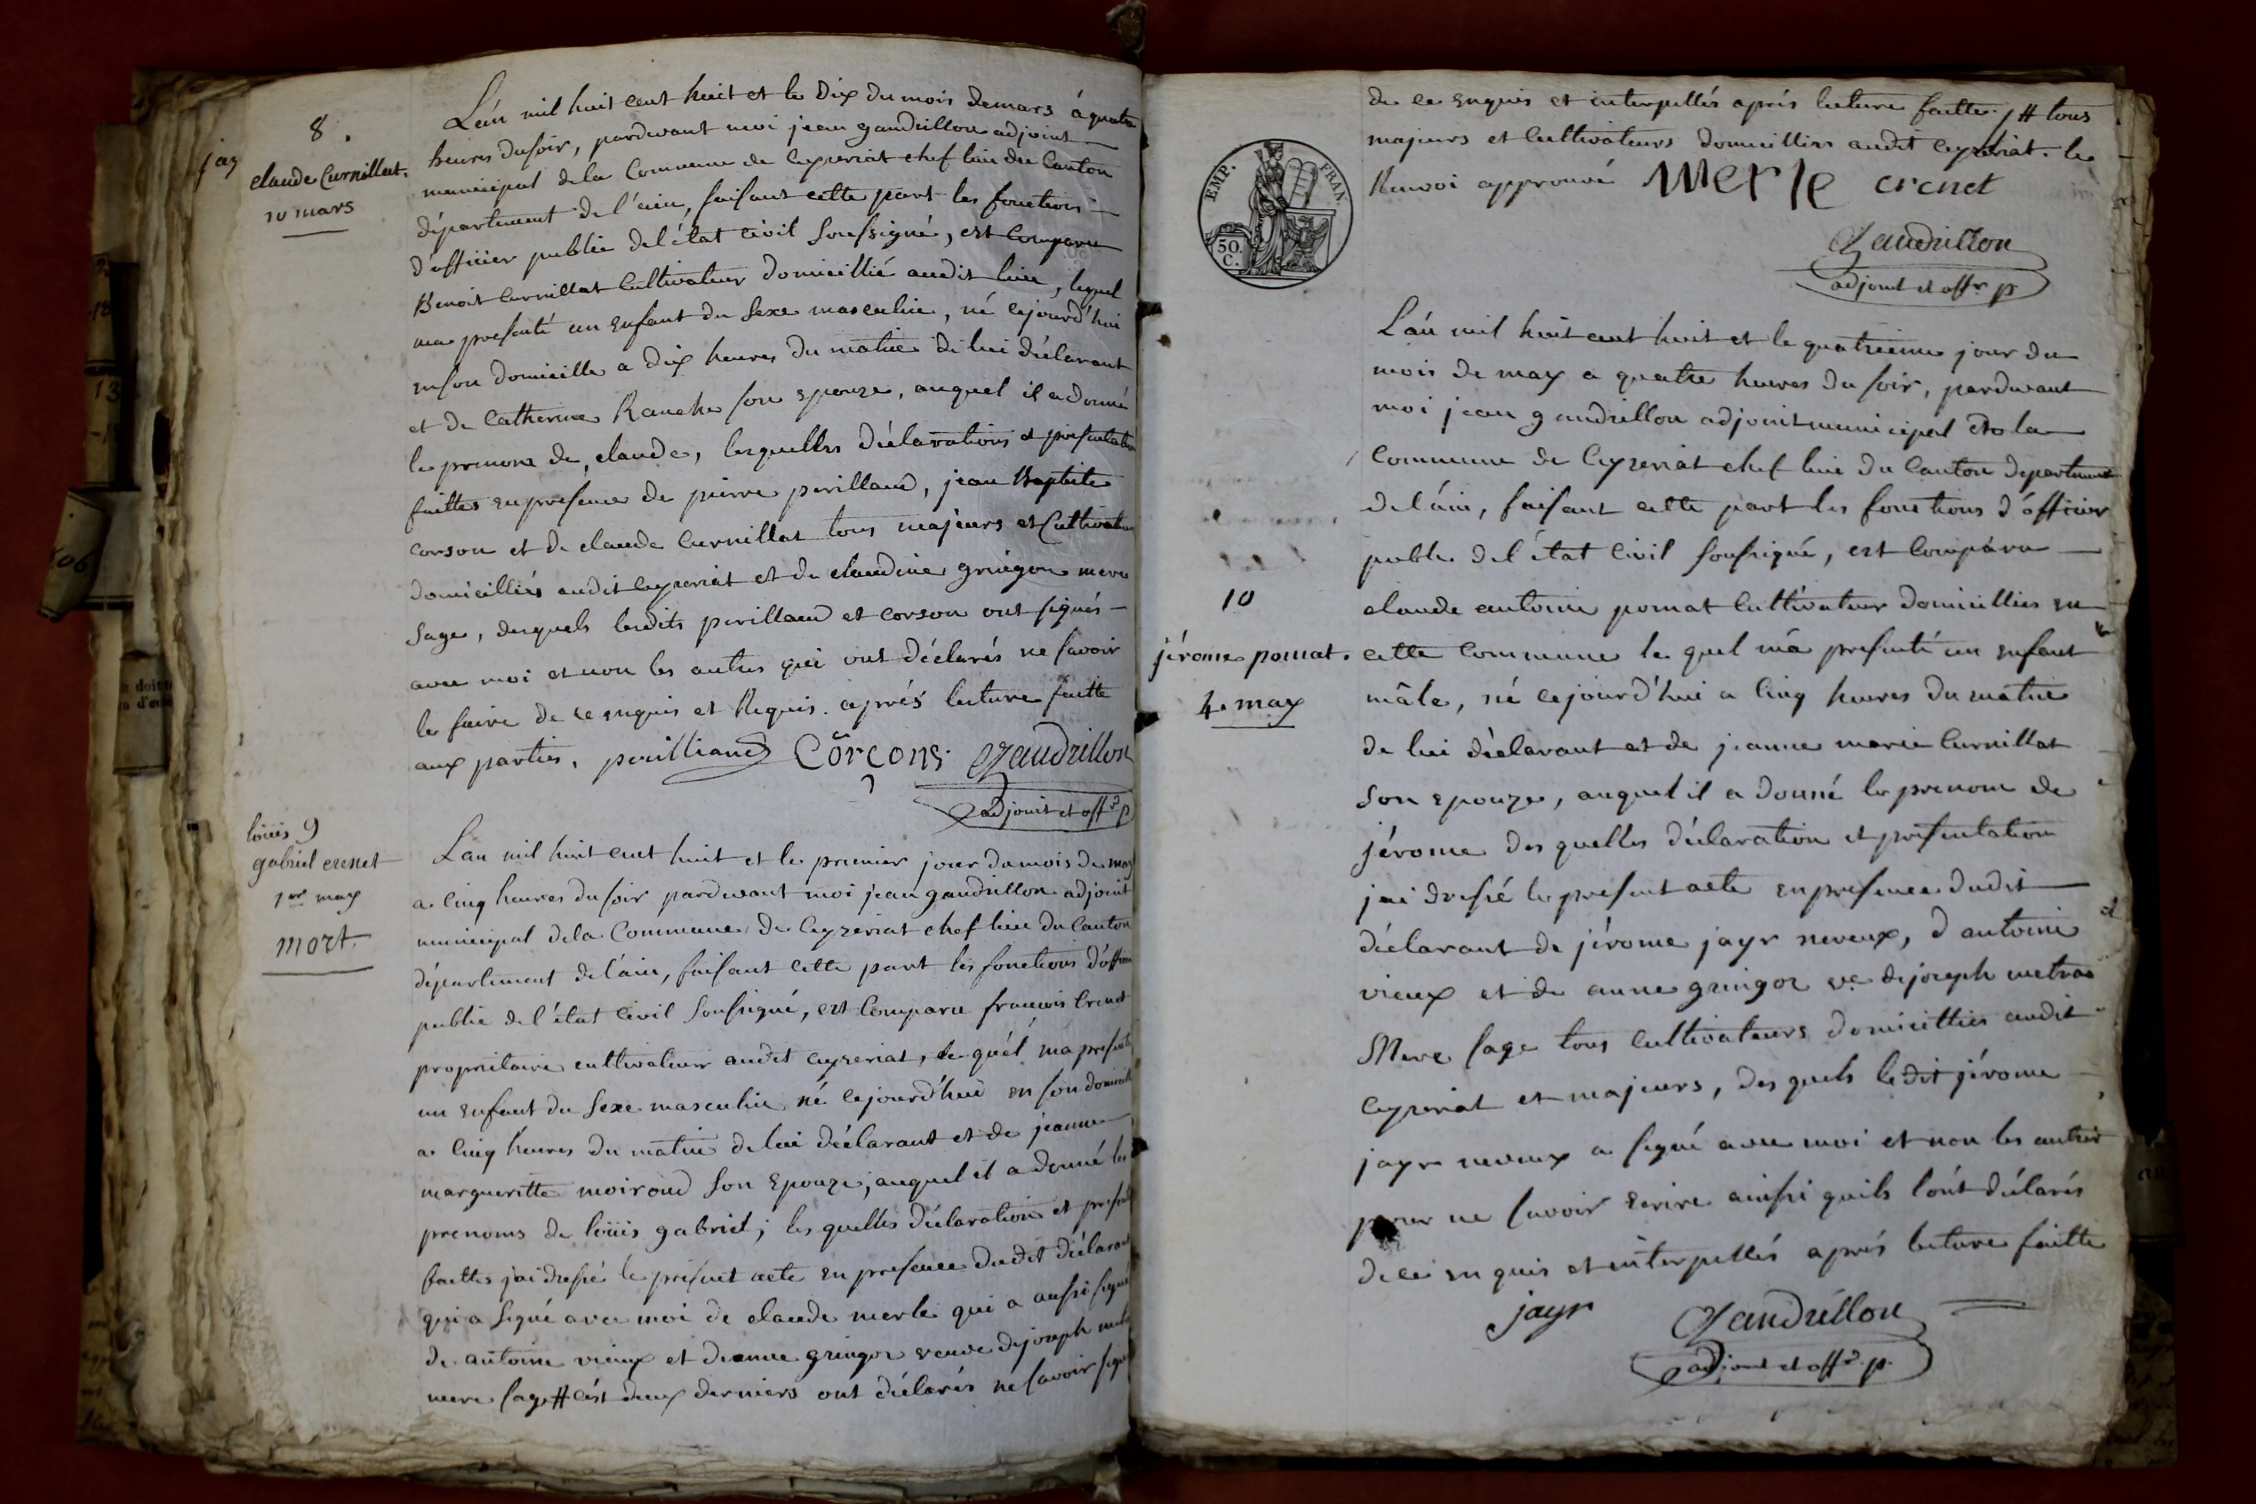 8.
jay
Claude Curnillat.
10 mars
L'án mil huit cent huit et le Dix du mois demars à quatre
heures du soir, pardevant moi jean gaudrillon adjoint
municipal dela Commune de Ceyzeriat chef lieu du Canton
département de l'ain, faisant cette part les fonctions
d'officier public del'état civil soussigné, est comparu
Benoit Curnillat Cultivateur domicillié audit lieu, lequel
ma présenté un enfant du sexe masculin, né cejourd'hui
enson domicille a dix heures du matin de lui déclarant
et de Catherine Ranche son epouze, auquel il a donné
le prenom de claude, lesquelles déclarations et présentation
faittes enpresence de pierre perilland, jean Baptiste
corson et de claude Curnillat tous majeurs et Cultivateurs
domicilliés audit ceyzeriat et de claudine gringon mere
sage, desquels lesdits perilland et corson ont signés
avec moi et non les autres qui ont déclarés ne savoir
le faire de ce enquis et Requis. après lecture faitte
aux parties. perilliand Corçons. Gaudrillon
adjoint et offr p
9
loüis
gabriel crenet
1er may
mort.
L'an mil huit cent huit et le premier jour du mois de may
a cinq heures du soir pardevant moi jean gaudrillon adjoint
municipal dela Commune de Ceyzeriat chef lieu du Canton
département de l'ain, faisant cette part les fonctions d'officier
public de l'état civil soussigné, est comparu francois Crenet
propriétaire cultivateur audit ceyzeriat, le quél ma présenté
un enfant du sexe masculin né cejourd'hui en son domicille
a cinq heures du matin de lui déclarant et de jeanne
margueritte moiroud son epouze, auquel il a donné les
prenoms de loüis gabriel; les quelles déclaration et présent
faittes j'ai dressé le présent acte en presence dudit déclarant
qui a signé avec moi de claude merle qui a aussi signé
de antoine vieux et deanne gringoz veuve dejoseph met
mere sage # cést deux derniers ont déclarés ne savoir signer
de ce enquis et interpellés après lecture faitte. # tous
majeurs et Cultivateurs domicilliés audit ceyzeriat. le
Renvoi approuvé Merle crenet
EMP. FRAN.
50. C.
Gaudrillon
adjoint et offr p
10
jérome pomat.
4. may
L'án mil huit cent huit et le quatrieme jour du
mois de may a quatre heures du soir, pardevant
moi jean gaudrillon adjoint municipal de la
Commune de Ceyzeriat chef lieu du Canton département
del'áin, faisant cette part les fonctions d'officier
public del'état civil soussigné, est comparu
claude antoine pomat cultivateur domicillié en
cette commune le quel m'a présenté un enfant
mâle, né cejourd'hui a cinq heures du matin
de lui déclarant et de jeanne marie Curnillat
son epouze, auquel il a donné le prenom de
jérome des quelles déclaration et présentation
j'ai dressé le présent acte en presence dudit
déclarant de jérome jayr neveux, d'antoine
vieux et de anne gringoz ve dejoseph metraz
Mere sage tous cultivateurs domicilliés audit
ceyzeriat et majeurs, des quels ledit jérome
jayr neveux a signé avec moi et non les autres
pour ne savoir ecrire ainsi quils l'ónt déclarés
de ce enquis et interpellés aprés lecture faitte
jayr Gaudrillon
adjoint et offr. p.